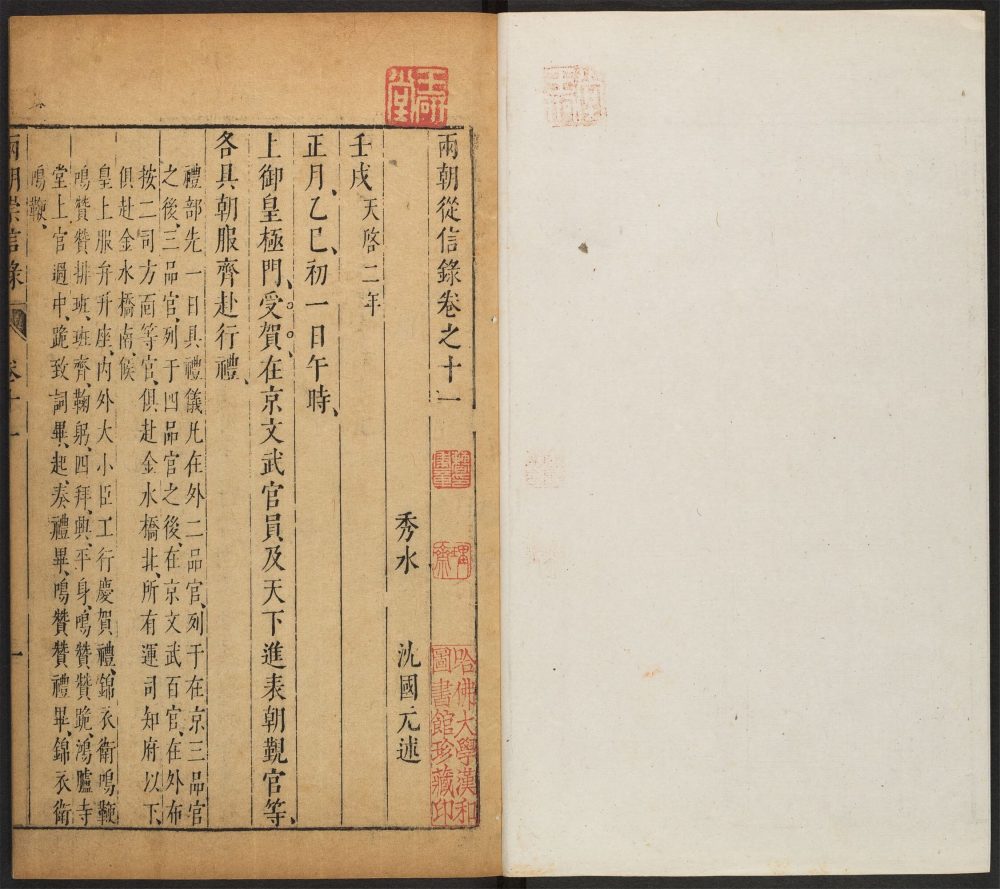 兩朝從信錄卷之十一
秀水 沈國元述
壬戌 天啓二年
正月、乙巳、初一日午時、
上御皇極門、受賀在京文武官員及天下進表朝覲官等、
各具朝服齊赴行禮、
禮部先一日具禮儀凡在外二品官、列于在京三品官
之後、三品官、列于四品官之後、在京文武百官、在外布
按二司方面等官、俱赴金水橋北、所有運司知府以下、
俱赴金水橋南、候
皇上服弁升座、內外大小臣工行慶賀禮、錦衣衛鳴鞭
鳴贊贊排班、班齊、鞠躬、四拜、興、平身、鳴贊贊跪、鴻臚寺
堂上官過中、跪致詞畢、起、奏禮畢、鳴贊贊禮畢、錦衣衛
鳴鞭、
兩朝從信錄 卷十一 一
哈佛大學漢和
圖書館珍藏印